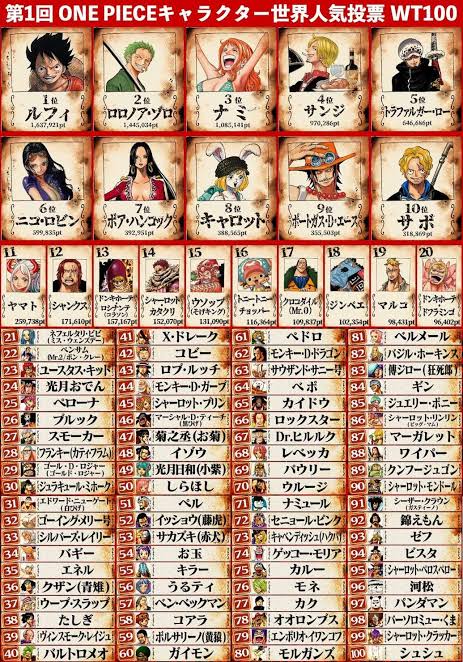 第1回 ONE PIECEキャラクター世界人気投票 WT100
1位
ルフィ
1,637,921pt
2位
ロロノア・ゾロ
1,445,034pt
3位
ナミ
1,085,141pt
4位
サンジ
970,286pt
5位
トラファルガー・ロー
646,686pt
6位
ニコ・ロビン
599,835pt
7位
ボア・ハンコック
392,951pt
8位
キャロット
388,565pt
9位
ポートガス・D・エース
355,503pt
10位
サボ
318,869pt
11
ヤマト
259,738pt
12
シャンクス
171,610pt
13
ドンキホーテ・
ロシナンテ
(コラソン)
157,167pt
14
シャーロット・
カタクリ
152,070pt
15
ウソップ
(そげキング)
131,090pt
16
トニートニー・
チョッパー
116,364pt
17
クロコダイル
(Mr.0)
109,837pt
18
ジンベエ
102,354pt
19
マルコ
98,431pt
20
ドンキホーテ・
ドフラミンゴ
96,402pt
21 ネフェルタリ・ビビ
(ミス・ウェンズデー)
22 ベンサム
(Mr.2/ボン・クレー)
23 ユースタス・キッド
24 光月おでん
25 ペローナ
26 ブルック
27 スモーカー
28 フランキー(カティ・フラム)
29 ゴール・D・ロジャー
(ゴールド・ロジャー)
30 ジュラキュール・ミホーク
31 エドワード・ニューゲート
(白ひげ)
32 ゴーイングメリー号
33 シルバーズ・レイリー
34 バギー
35 エネル
36 クザン(青雉)
37 ウープ・スラップ
38 たしぎ
39 ヴィンスモーク・レイジュ
40 バルトロメオ
41 X・ドレーク
42 コビー
43 ロブ・ルッチ
44 モンキー・D・ガープ
45 シャーロット・プリン
46 マーシャル・D・ティーチ
(黒ひげ)
47 菊之丞(お菊)
48 イゾウ
49 光月日和(小紫)
50 しらほし
51 ペル
52 イッショウ(藤虎)
53 サカズキ(赤犬)
54 お玉
55 キラー
56 うるティ
57 ベン・ベックマン
58 コアラ
59 ボルサリーノ(黄猿)
60 ガイモン
61 ペドロ
62 モンキー・D・ドラゴン
63 サウザンド・サニー号
64 ベポ
65 カイドウ
66 ロックスター
67 Dr.ヒルルク
68 レベッカ
69 パウリー
70 ウルージ
71 ナミュール
72 セニョール・ピンク
73 キャベンディッシュ(ハクバ)
74 ゲッコー・モリア
75 カルー
76 モネ
77 カク
78 オオロンブス
79 エンポリオ・イワンコフ
80 モルガンズ
81 ベルメール
82 バジル・ホーキンス
83 傳ジロー(狂死郎)
84 ギン
85 ジュエリー・ボニー
86 シャーロット・リンリン
(ビッグ・マム)
87 マーガレット
88 ワイパー
89 クンフージュゴン
90 シャーロット・モンドール
91 シーザー・クラウン
(ガスティーノ)
92 錦えもん
93 ゼフ
94 ビスタ
95 シャーロット・ペロスペロー
96 河松
97 パンダマン
98 バーソロミュー・くま
99 シャーロット・クラッカー
100 シュシュ